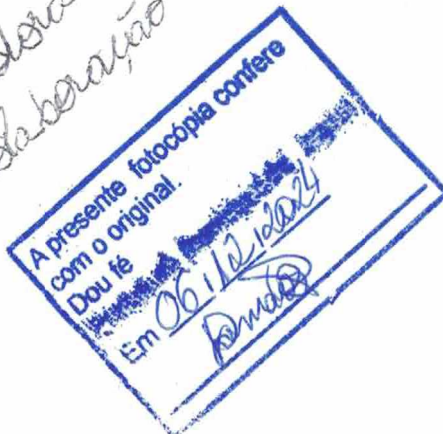 A presente fotocópia confere
com o original.
Dou fé
Em 06/12/2024